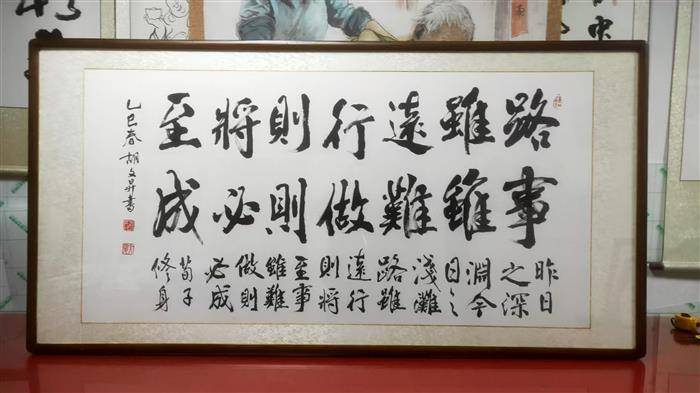 路雖遠行則將至
事雖難做則必成
昨日
之深
淵今
日之
淺灘
路雖
遠行
則將
至事
雖難
做則
必成
荀子
修身
乙巳春胡文昇書